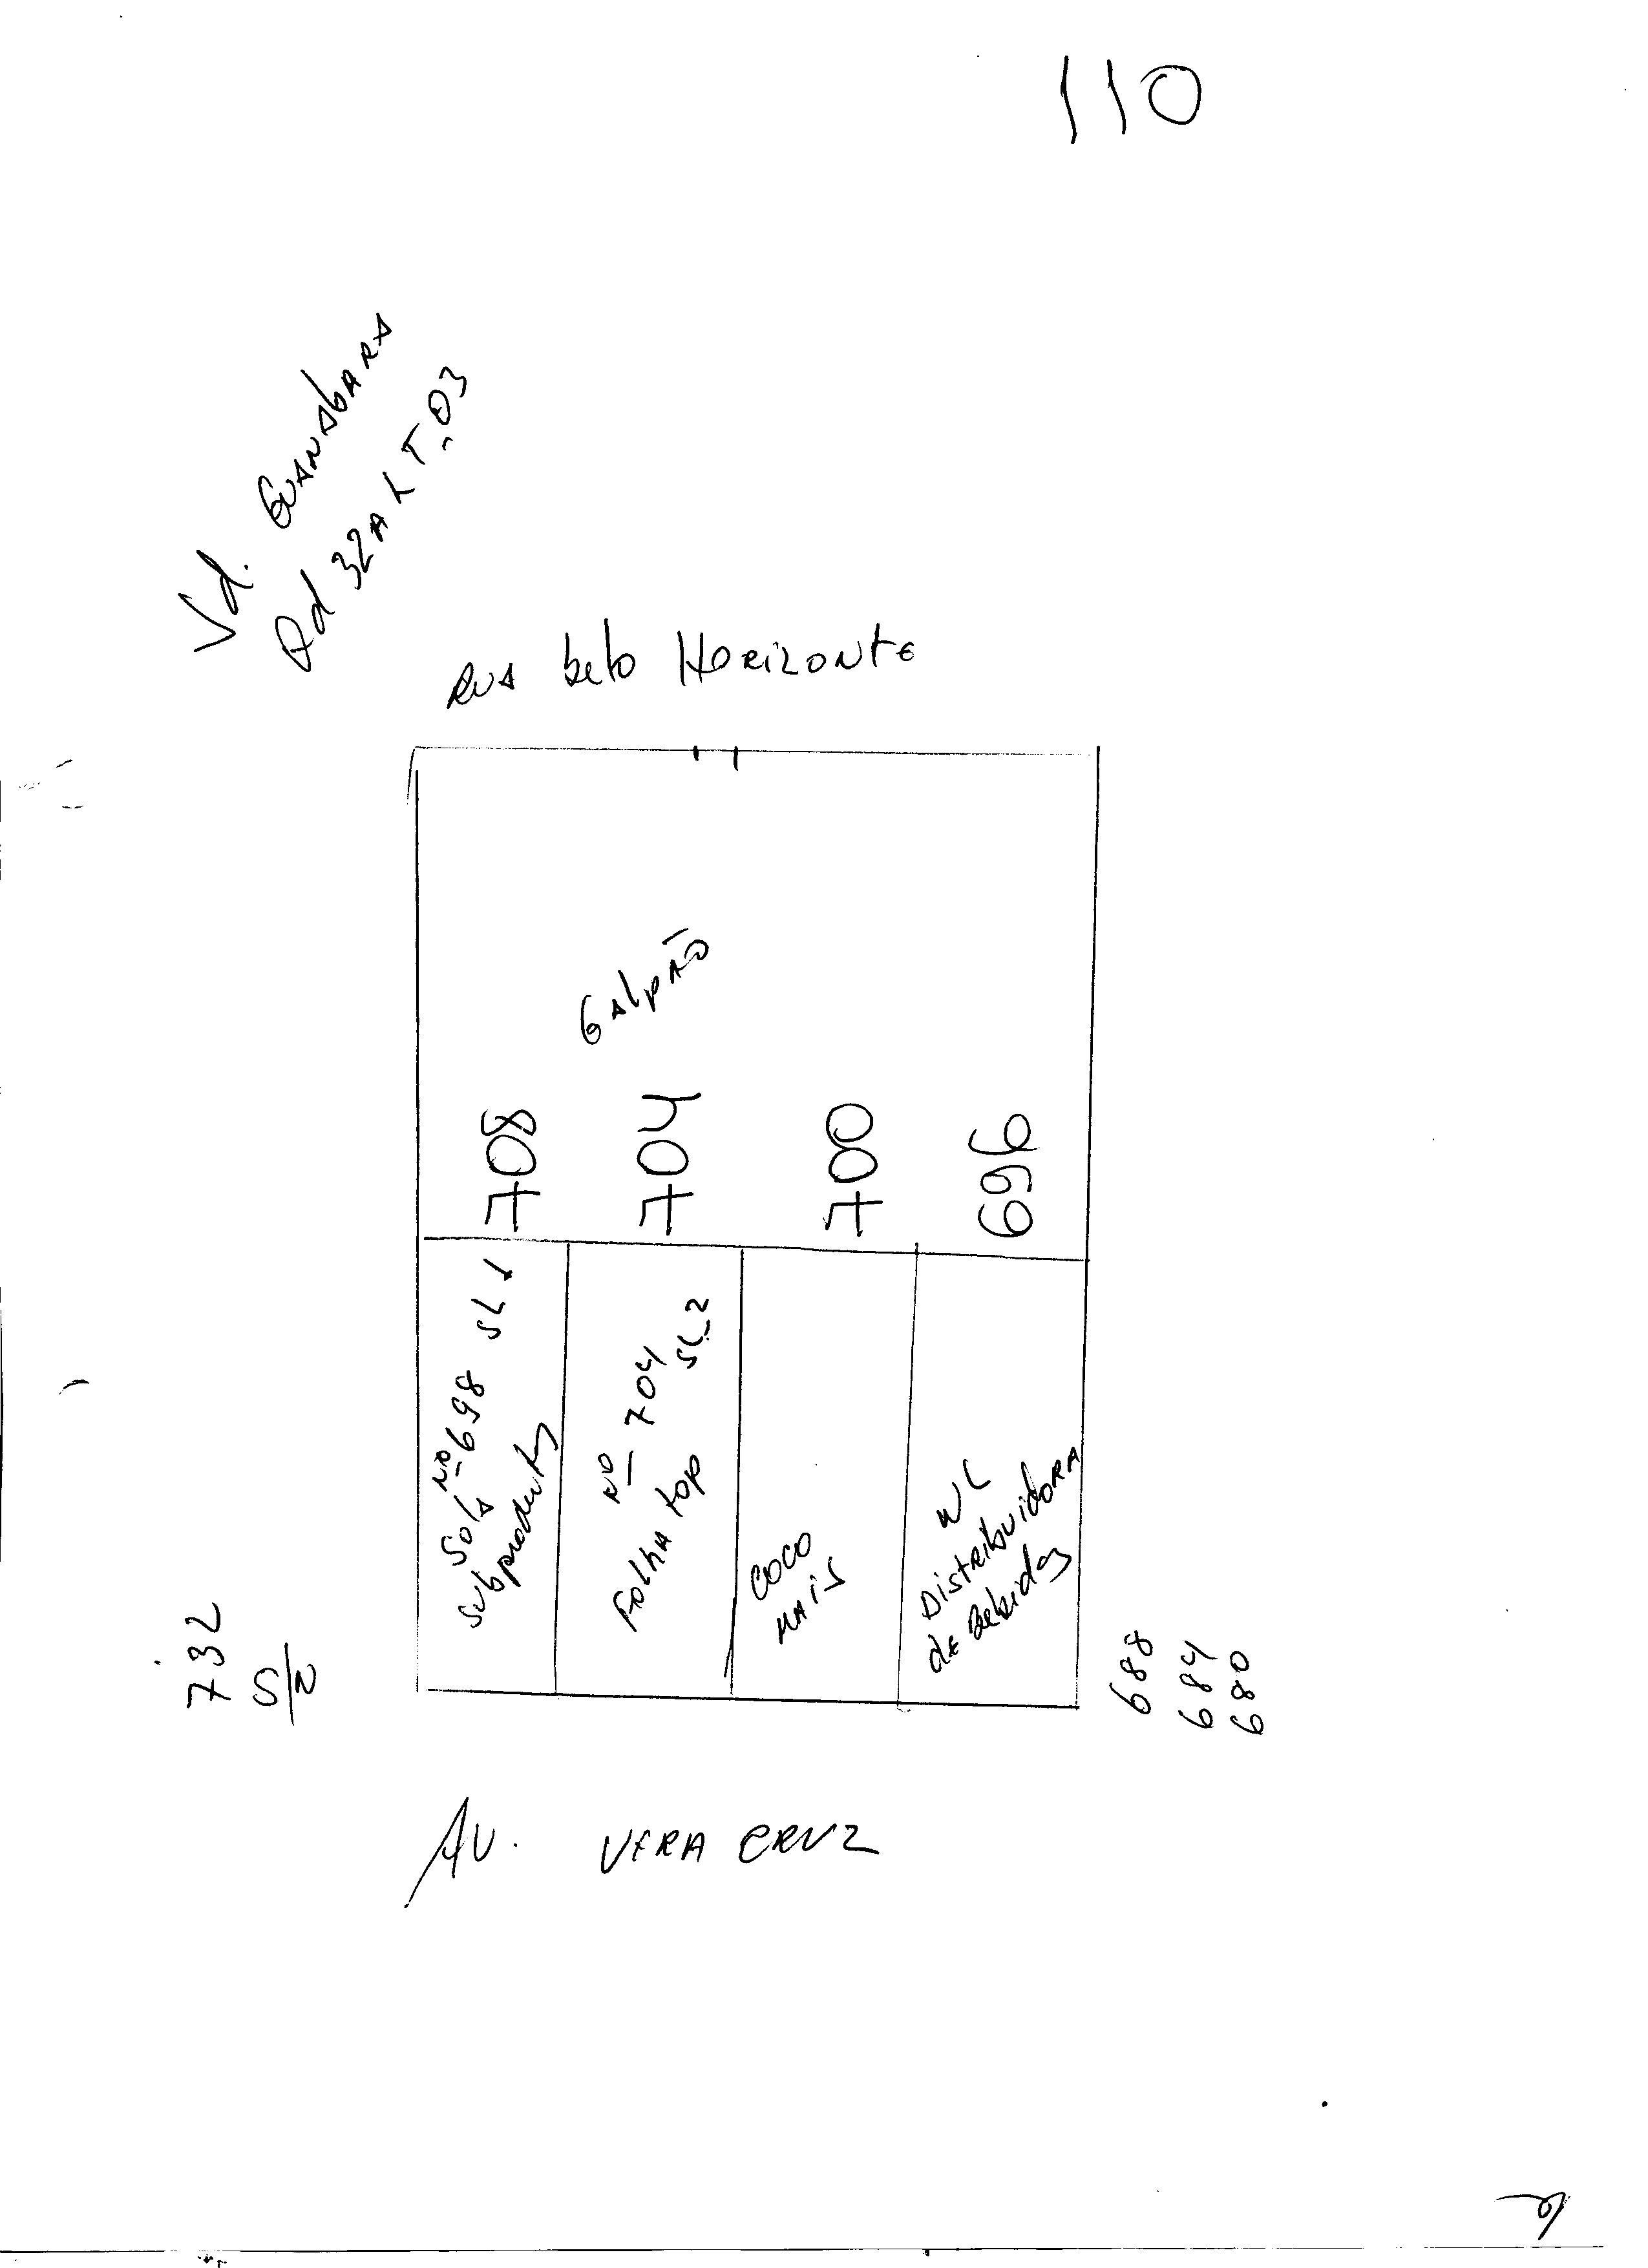 110
Vd. GUANAbARA
Qd 32A LT-03
RUA belo HORIZONTE
GALPÃO
708
704
700
696
Nº 698 SL 1
Sola
subprodutos
Nº 704
SL-2
folhA top
COCO
MAIS
WL
DistRibuidoRA
de Bebidas
732
S/N
688
684
680
AV. VERA CRUZ